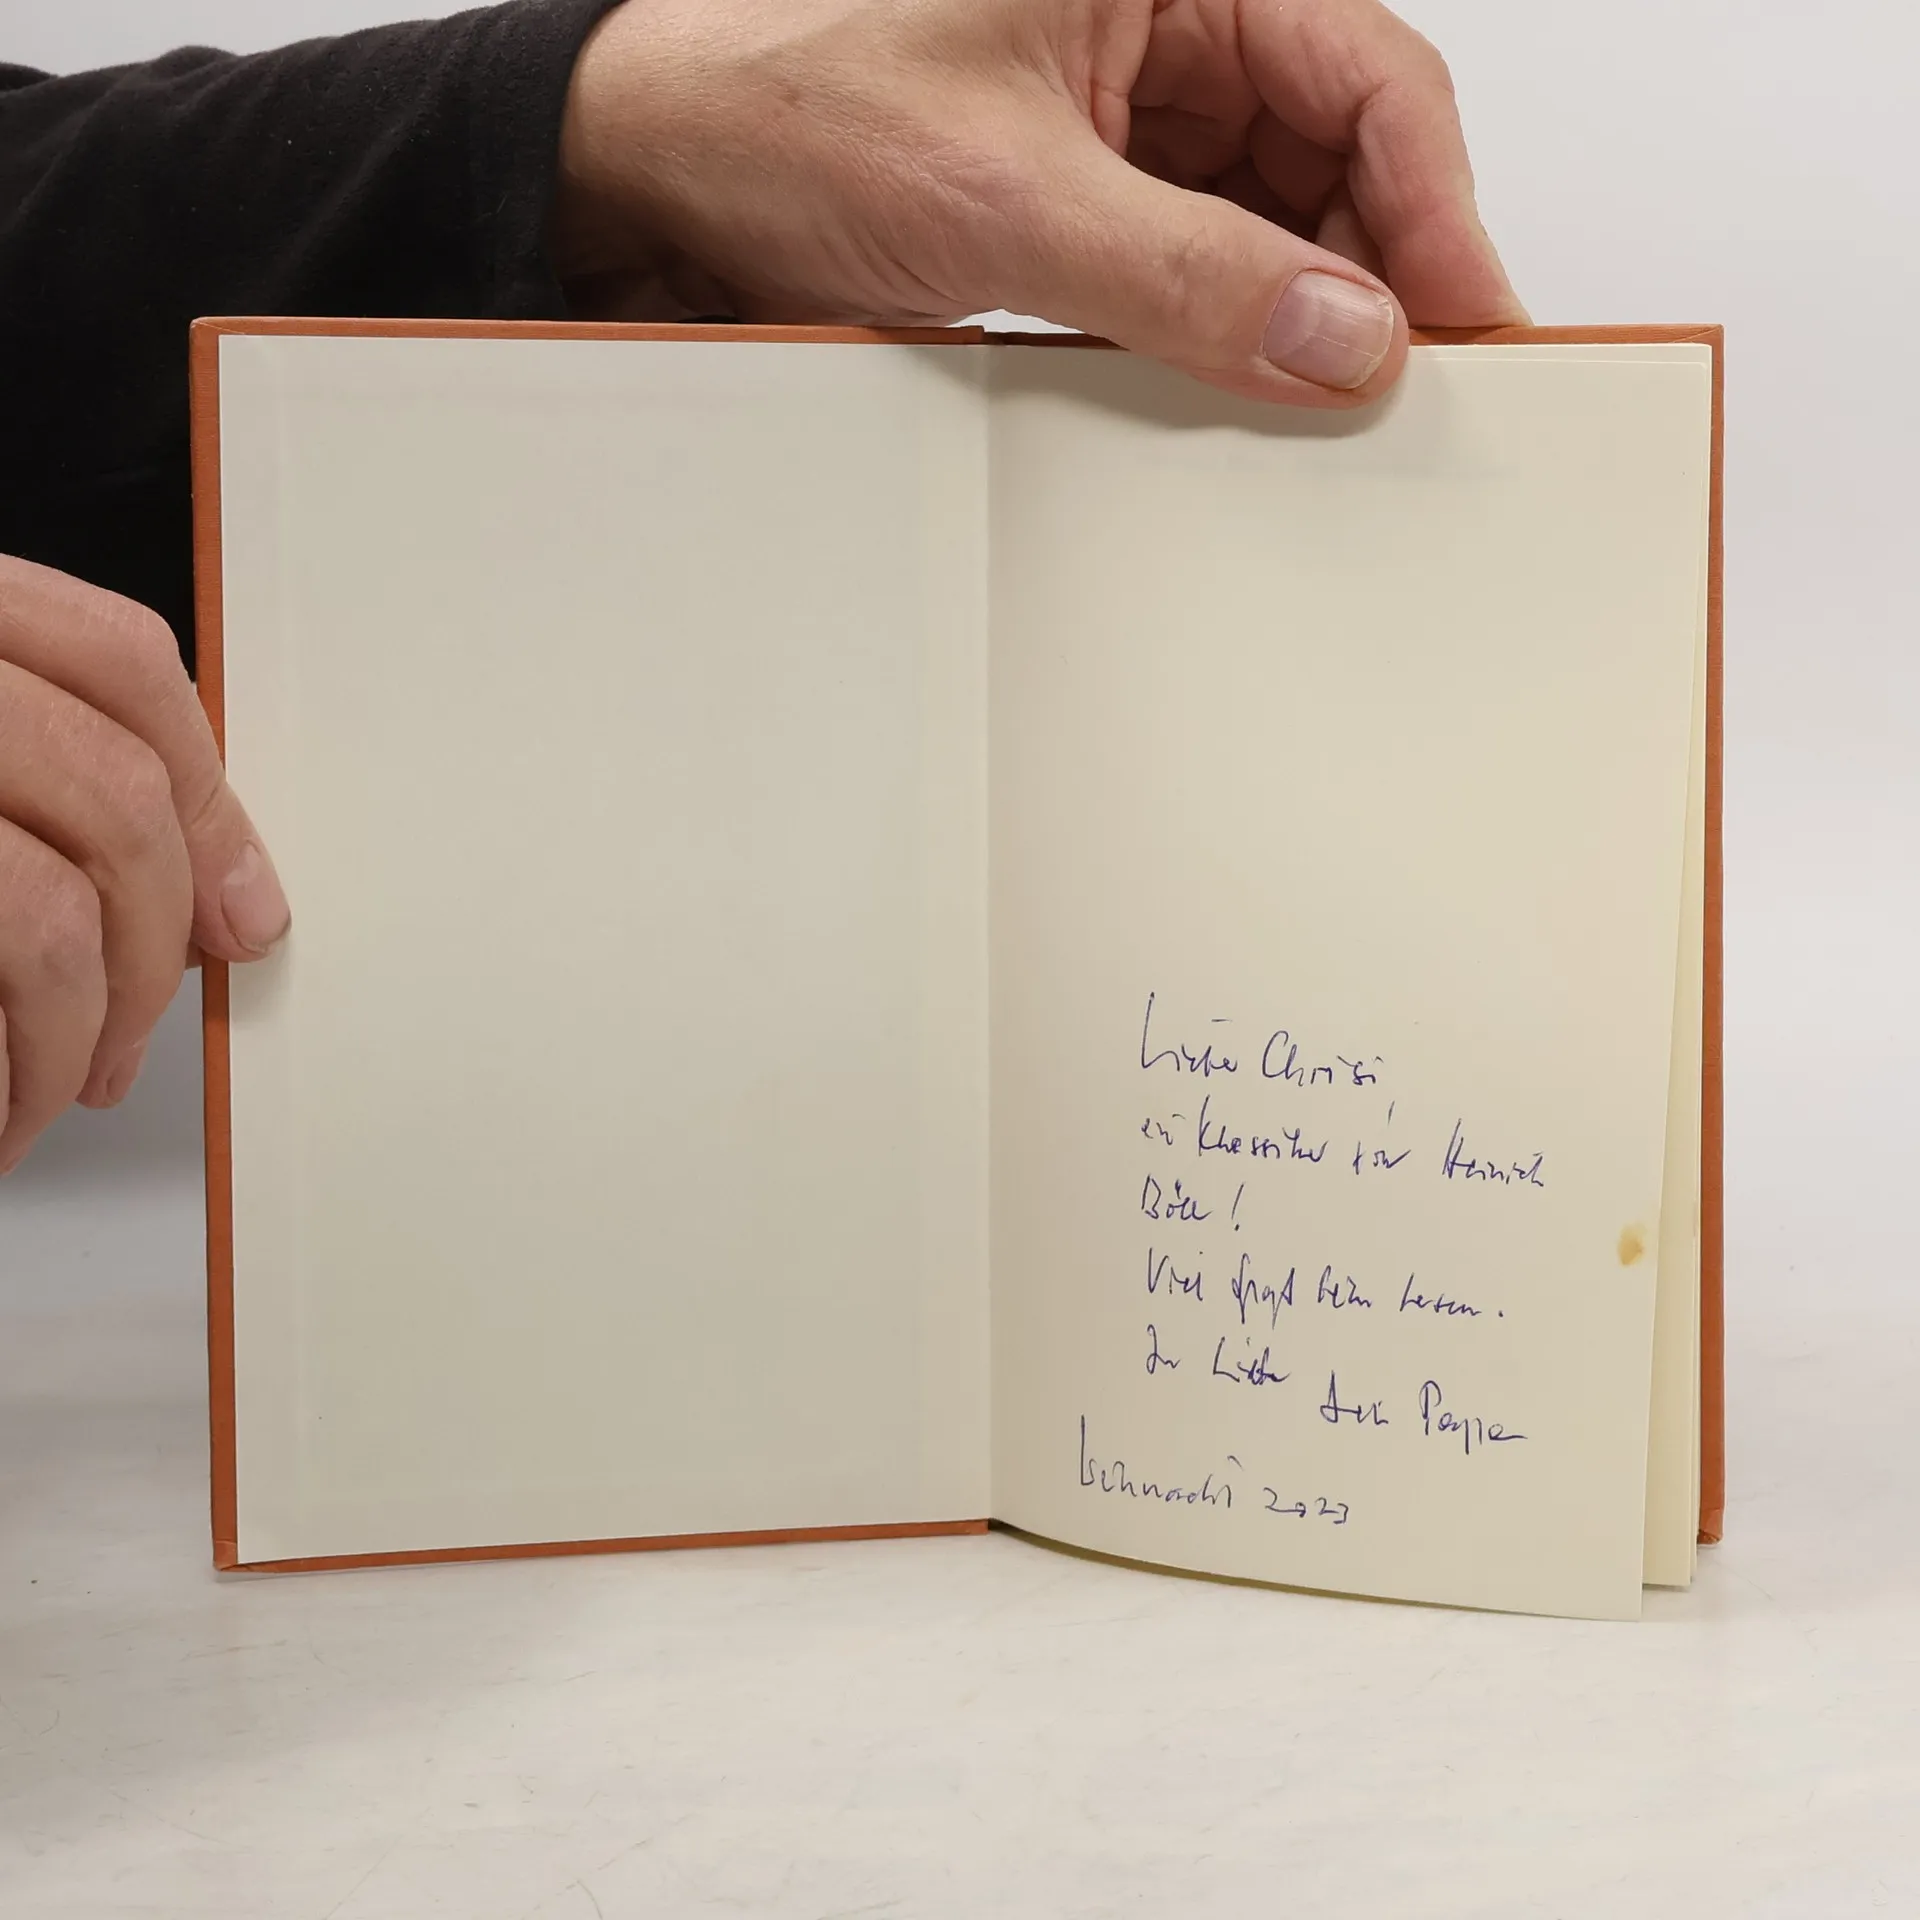 Liebe Chrisi,
ein Klassiker von Heinrich
Böll!
Viel Spaß beim Lesen.
In Liebe Dein Papa
Weihnacht 2023